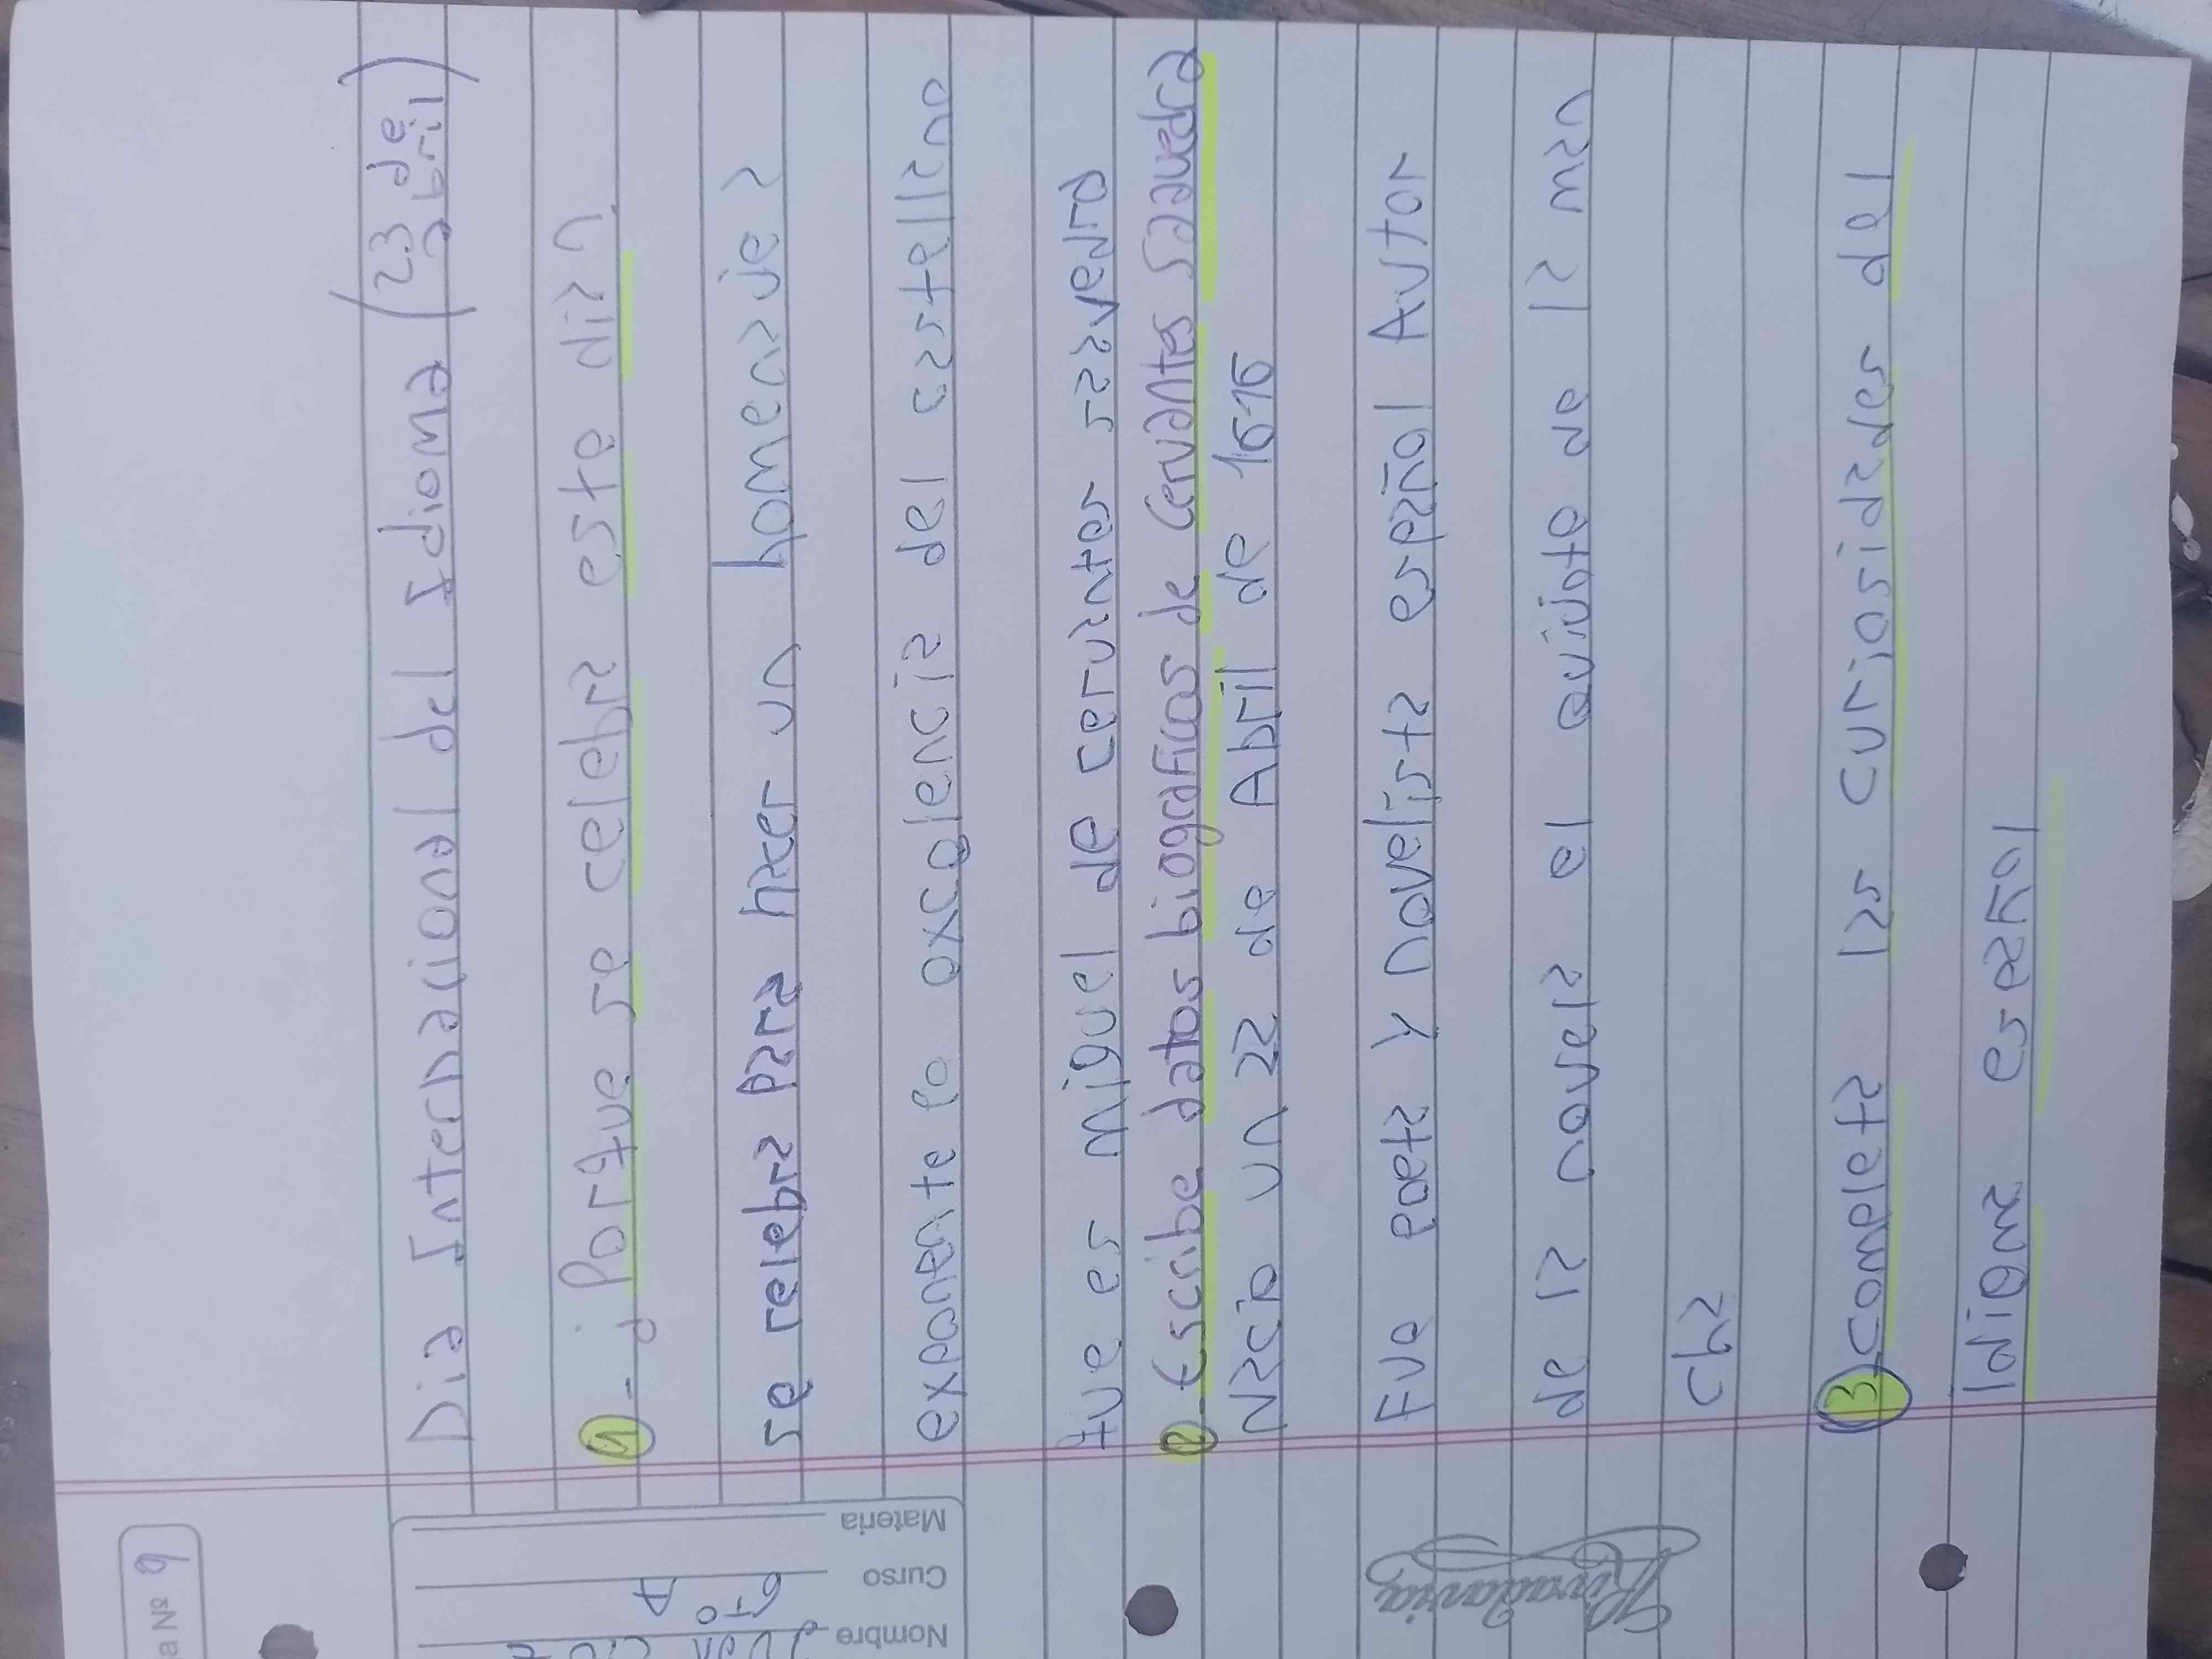 a Nº 9
Nombre Juan
Curso 6to A
Materia
Dia Internacional del Idioma (23 de abril)
1- ¿Porque se celebra este dia?
se relebra para hacer un homecaje a
exponente po oxcglencia del castellano
que es Miguel de ceruantes saaverd
2- Escribe datos biograficos de Cervantes saavedra
Nacio un 22 de Abril de 1616
Fue poeta y novelista español Autor
de la novela el quijote de la man
cha
3 completa las curiosidades del
Idigma español
Rivadavia